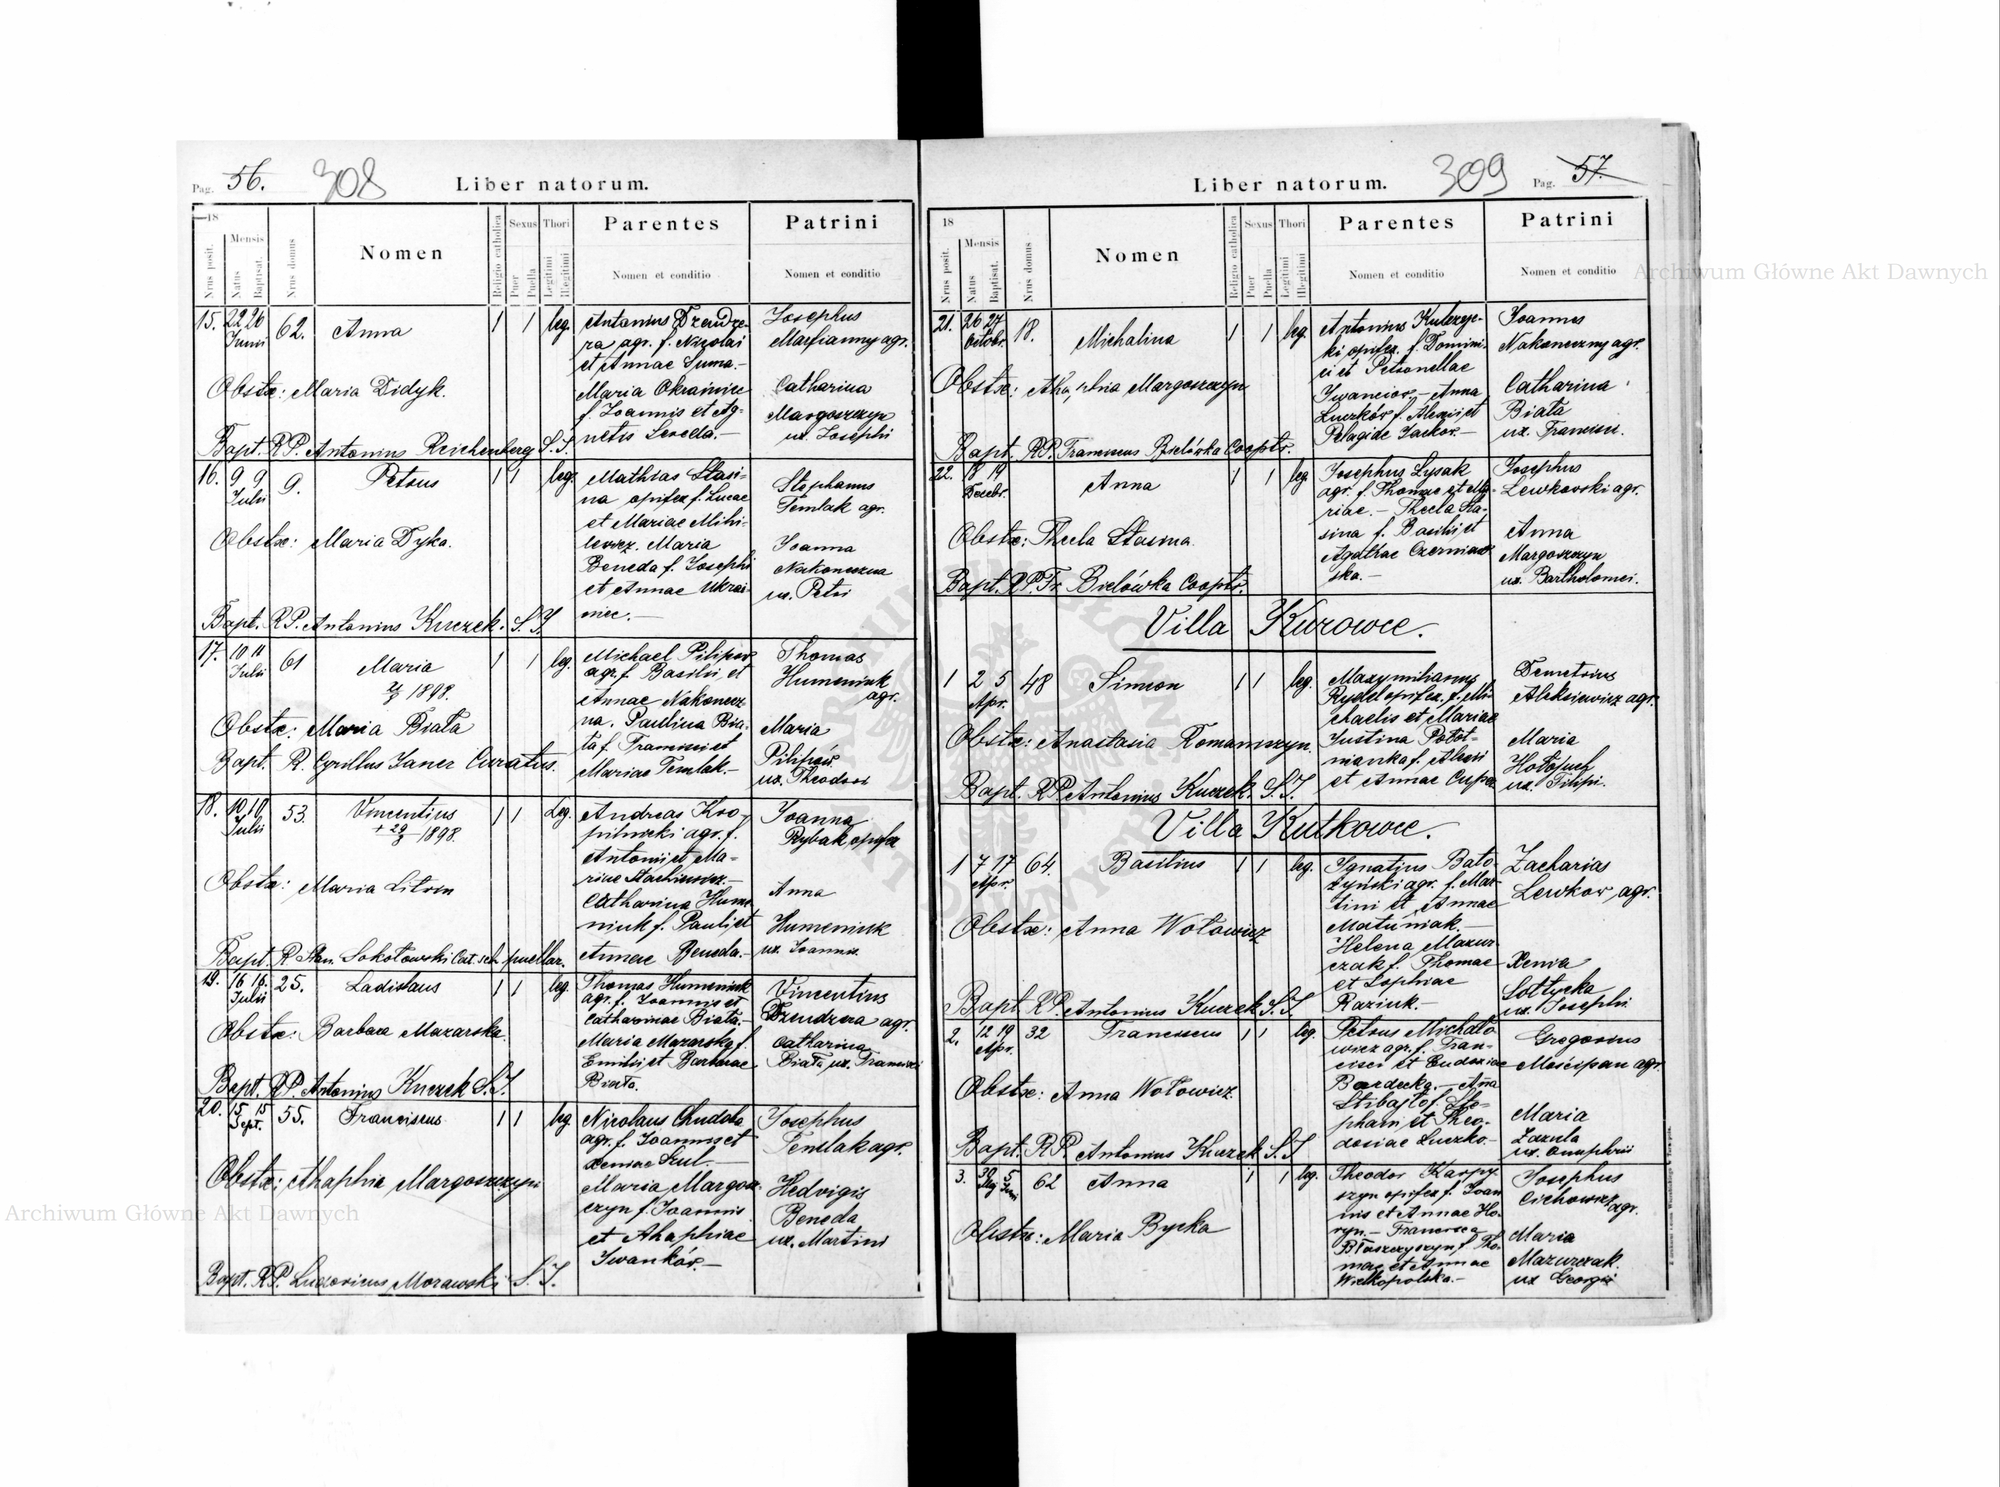 Pag. 56. 308 Liber natorum.
18
Nrus posit.
Mensis
Natus
Baptisat.
Nrus domus
Nomen
Religio catholica
Sexus
Puer
Puella
Thori
Legitimi
Illegitimi
Parentes
Nomen et conditio
Patrini
Nomen et conditio
15. 22 26 Junii 62. Anna 1 1 leg.
Antonius Dzendze-
ra agr. f. Nicolai
et Annae Suma.-
Maria Okrainiec
f. Joannis et Ag-
netis Sereda.-
Josephus
Marfianny agr.
Catharina
Margoszczyn
ux. Josephi
Obstx: Maria Didyk.
Bapt. RP. Antonius Reichenberg S.J.
16. 9 9 Julii 9. Petrus 1 1 leg.
Mathias Stasi-
na opifex f. Lucae
et Mariae Mihi-
lewicz. Maria
Beneda f. Josephi
et Annae Ukrai-
niec.-
Stephanus
Temlak agr.
Joanna
Nakoneczna
ux. Petri
Obstx: Maria Dyka.
Bapt. RP. Antonius Kuczek. S.J.
17. 10 11 Julii 61 Maria 1 1 leg.
1898.
Michael Pilipów
agr. f. Basilii et
Annae Nakonecz-
na. Paulina Bia-
ła f. Francisci et
Mariae Temlak.-
Thomas
Humeniuk
agr.
Maria
Pilipów
ux. Theodori
Obstx: Maria Biała
Bapt. R. Cyrillus Janer Curatus.
18. 10 10 Julii 53. Vincentius 1 1 Leg.
1898.
Andreas Kro-
pilnicki agr. f.
Antonii et Ma-
riae Stachiewicz.-
Catharina Hume-
niuk f. Pauli et
Annae Beneda.-
Joanna
Rybak opifex
Anna
Humeniuk
ux. Joannis
Obstx: Maria Litwin
Bapt. R. Stan. Sokołowski Cat. sch. puellar.
19. 16 16 Julii 25. Ladislaus 1 1 leg.
Thomas Humeniuk
agr. f. Joannis et
Catharinae Biała.-
Maria Mazarska f.
Emilii et Barbarae
Biała.
Vincentius
Dzendzera agr.
Catharina
Biała ux. Francisci
Obstx: Barbara Mazarska.
Bapt. RP. Antonius Kuczek S.J.
20. 15 15 Sept. 55. Franciscus 1 1 leg
Nicolaus Chudoba
agr. f. Joannis et
Xeniae Kul.-
Maria Margosz-
czyn f. Joannis
et Ahaphiae
Iwanków.-
Josephus
Temlak agr.
Hedvigis
Beneda
ux. Martini
Obstx: Ahaphia Margoszczyn
Bapt. RP. Ludovicus Morawski S.J.
Liber natorum. 309 Pag. 57.
18
Nrus posit.
Mensis
Natus
Baptisat.
Nrus domus
Nomen
Religio catholica
Sexus
Puer
Puella
Thori
Legitimi
Illegitimi
Parentes
Nomen et conditio
Patrini
Nomen et conditio
21. 26 27 Octobr. 18. Michalina 1 1 leg.
Antonius Kulczyc-
ki opifex f. Domini-
ci et Petronellae
Iwanciow.- Anna
Luczków f. Alexii et
Pelagiae Jackow.-
Joannes
Nakoneczny agr.
Catharina
Biała
ux. Francisci.
Obstx: Ahaphia Margoszczyn
Bapt. RP. Franciscus Bielówka Cooptr.
22. 18 19 Decebr. Anna 1 1 leg
Josephus Lysak
agr. f. Thomae et Ma-
riae.- Thecla Sta-
sina f. Basilii et
Agathae Czerniaw-
ska.-
Josephus
Lewkowski agr.
Anna
Margoszczyn
ux. Bartholomei.
Obstx: Thecla Stasina.
Bapt. RP. Fr. Bielówka Cooptr.
Villa Kurowce.
1 2 5 Apr. 48 Simeon 1 1 leg.
Maxymilianus
Rydel opifex, f. Mi-
chaelis et Mariae
Justina Potot-
nianka f. Alexii
et Annae
Demetrius
Aleksiewicz agr.
Maria
Hołojuch
ux. Filipi.
Obstx: Anastasia Romaniszyn.
Bapt. RP. Antonius Kuczek. S.J.
Villa Kutkowce.
1 7 17 Apr. 64. Basilius 1 1 leg.
Ignatius Bato-
żyński agr. f. Mar-
tini et Annae
Matuniak.-
Helena Mazur-
czak f. Thomae
et Sophiae
Raziuk.-
Zacharias
Lewkow, agr.
Xenia
Sołtycka
ux. Josephi.
Obstx: Anna Wołowicz
Bapt. RP. Antonius Kuczek S.J.
2. 12 19 Apr. 32 Franciscus 1 1 leg.
Petrus Michało-
wicz agr. f. Fran-
cisci et Eudoxiae
Bardecka.- Ana
Stibajło f. Ste-
phani et Theo-
dosiae Luczko.-
Gregorius
Mościpan agr.
Maria
Zazula
ux. Onuphrii
Obstx: Anna Wołowicz.
Bapt. RP. Antonius Kuczek S.J
3. 30 Maj 5 Juni 62 Anna 1 1 leg.
Theodor Karpy-
szyn opifex f. Joan-
nis et Annae Ho-
ryn.- Francisca
Błaszczyszyn f. Tho-
mae et Annae
Wielkopolska.-
Josephus
Cichowicz agr.
Maria
Mazurczak
ux Georgii
Obstx: Maria Bycka
Archiwum Główne Akt Dawnych
Archiwum Główne Akt Dawnych